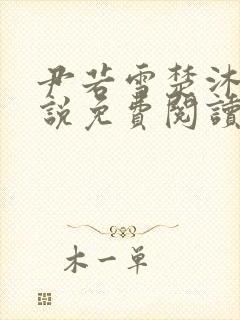 尹若雪楚沐
說免費閱讀
木一單